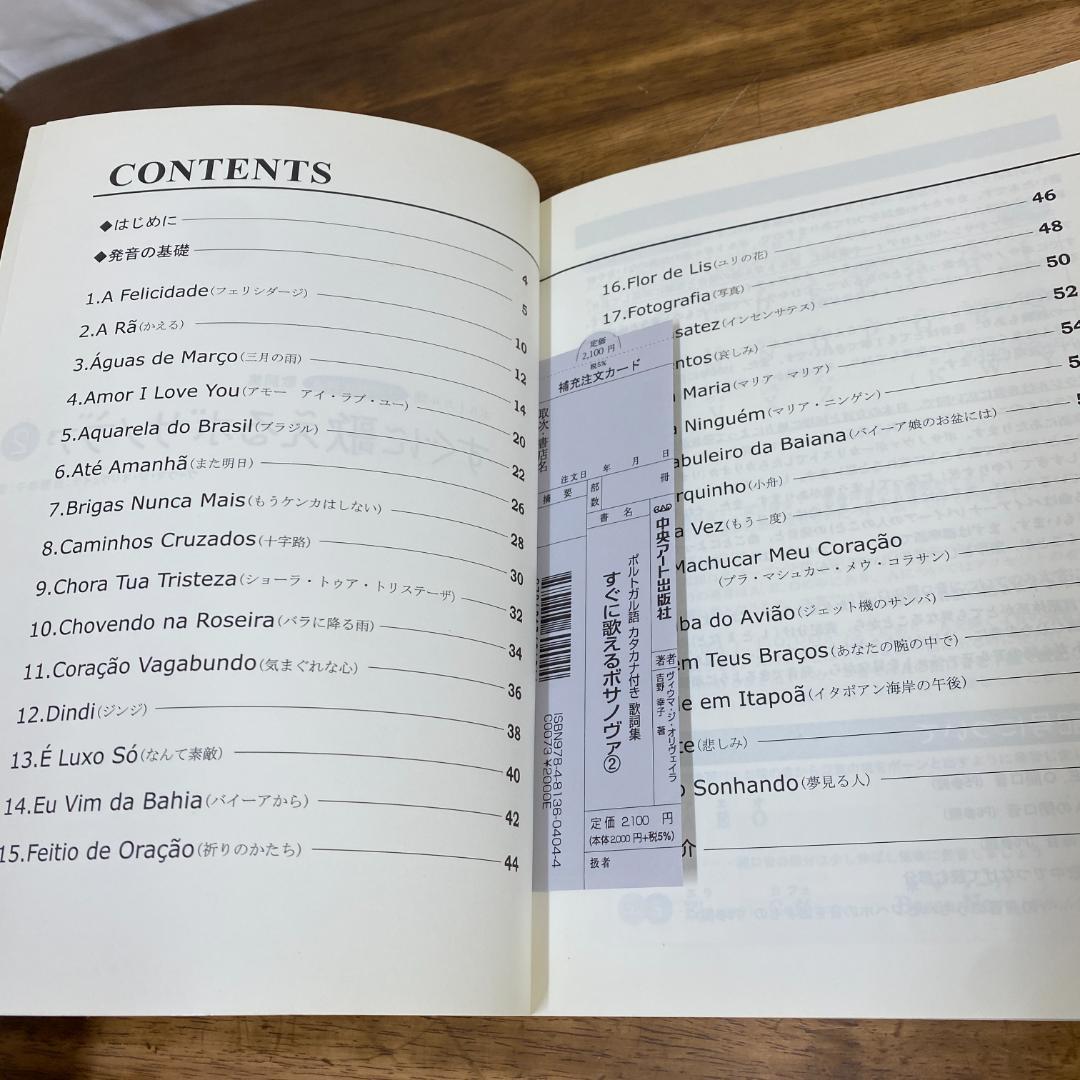 CONTENTS
◆はじめに 4
◆発音の基礎 5
1.A Felicidade(フェリシダージ) 10
2.A Rã(かえる) 12
3.Águas de Março(三月の雨) 14
4.Amor I Love You(アモー アイ・ラブ・ユー) 20
5.Aquarela do Brasil(ブラジル) 22
6.Até Amanhã(また明日) 26
7.Brigas Nunca Mais(もうケンカはしない) 28
8.Caminhos Cruzados(十字路) 30
9.Chora Tua Tristeza(ショーラ・トゥア・トリステーザ) 32
10.Chovendo na Roseira(バラに降る雨) 34
11.Coração Vagabundo(気まぐれな心) 36
12.Dindi(ジンジ) 38
13.É Luxo Só(なんて素敵) 40
14.Eu Vim da Bahia(バイーアから) 42
15.Feitio de Oração(祈りのかたち) 44
16.Flor de Lis(ユリの花) 46
17.Fotografia(写真) 48
satez(インセンサテス) 50
ntos(哀しみ) 52
Maria(マリア マリア) 54
Ninguém(マリア・ニンゲン) 5
abuleiro da Baiana(バイーア娘のお盆には)
rquinho(小舟)
a Vez(もう一度)
Machucar Meu Coração
(プラ・マシュカー・メウ・コラサン)
ba do Avião(ジェット機のサンバ)
em Teus Braços(あなたの腕の中で)
e em Itapoã(イタポアン海岸の午後)
te(悲しみ)
o Sonhando(夢見る人)
介
定価
2,100 円
税5%
補充注文カード
取次・書店名
注文日 年 月 日
摘要
部数
冊
書名
CAD 中央アート出版社
ポルトガル語 カタカナ付き 歌詞集
すぐに歌えるボサノヴァ②
著者
ヴィウマ・ジ・オリヴェイラ
吉野 幸子 著
ISBN978-4-8136-0404-4
C0073 ¥2000E
定価 2,100 円
(本体2,000 円+税5%)
扱者